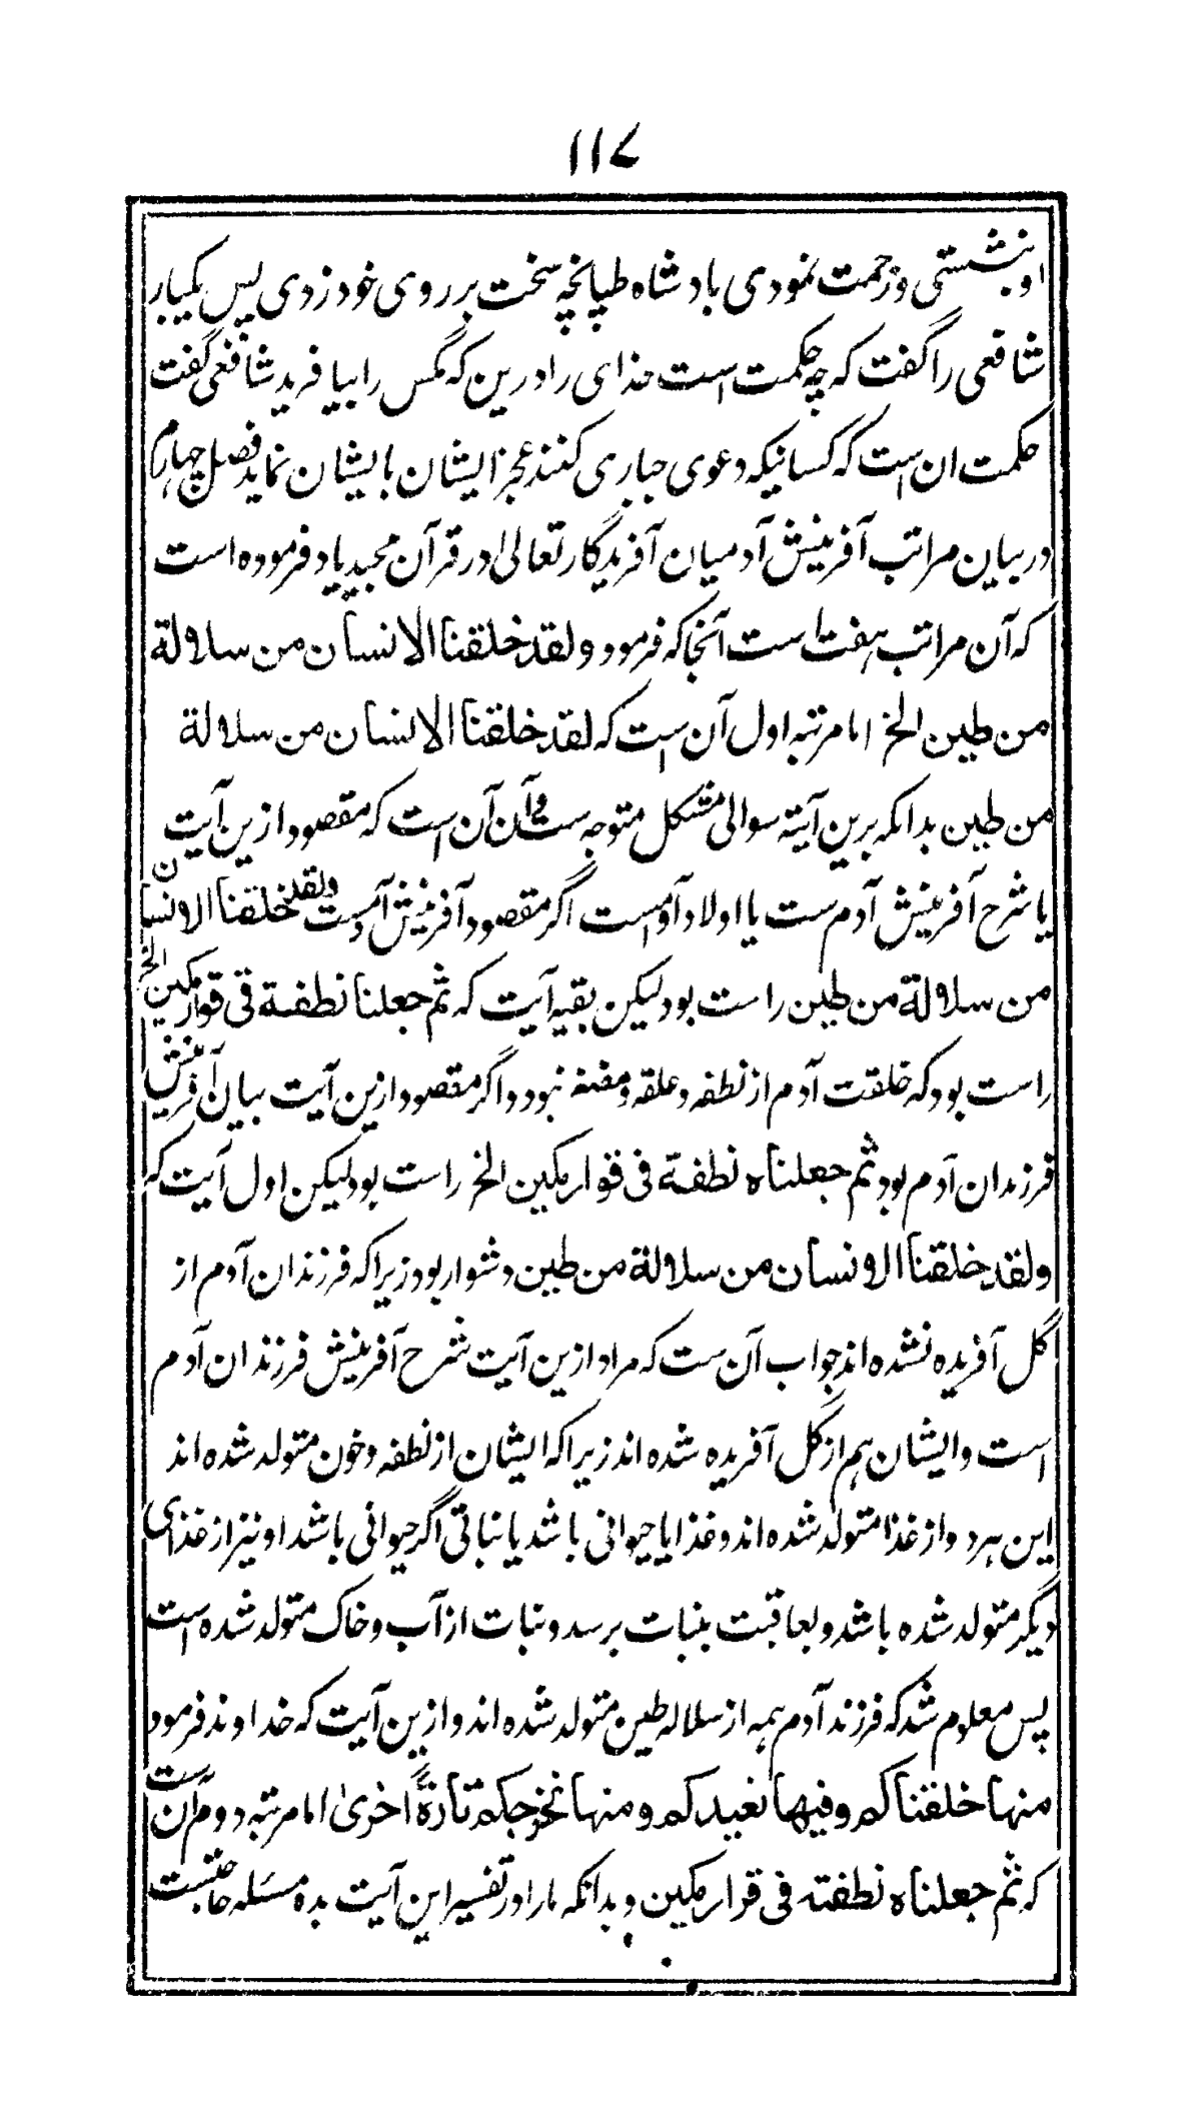 ۱۱۷
او بنشستی و زحمت نمودی بادشاه طپانچه سخت بر روی خود زدی پس یکبار
شافعی را گفت که چه حکمت است خدای را درین که مگس را بیافرید شافعی گفت
حکمت ان است که کسانیکه دعوی جباری کنند عجز ایشان بایشان نماید فصل چهارم
در بیان مراتب آفرینش آدمیان آفریدگار تعالیٰ در قرآن مجید یاد فرموده است
که آن مراتب هفت است آنجا که فرمود ولقد خلقنا الانسان من سلالة
من طین الخ اما مرتبه اول آن است که لقد خلقنا الانسان من سلالة
من طین بدانکه برین آیته سوالی مشکل متوجه ست و آن آن است که مقصود ازین آیت
یا شرح آفرینش آدم ست یا اولاد آدم است اگر مقصود آفرینش آدم ست ولقد خلقنا الانسان
من سلالة من طین راست بود لیکن بقیه آیت که ثم جعلنا نطفة فی قرار مکین الخ
راست بود که خلقت آدم از نطفه و علقه و مضغه نبود و اگر مقصود ازین آیت بیان آفرینش
فرزندان آدم بود ثم جعلناه نطفة فی قرار مکین الخ راست بود لیکن اول آیت که
ولقد خلقنا الانسان من سلالة من طین دشوار بود زیرا که فرزندان آدم از
گل آفریده نشده اند جواب آن ست که مراد ازین آیت شرح آفرینش فرزندان آدم
است و ایشان هم از گل آفریده شده اند زیرا که ایشان از نطفه و خون متولد شده اند
این هر دو از غذا متولد شده اند و غذا یا حیوانی باشد یا نباتی اگر حیوانی باشد او نیز از غذای
دیگر متولد شده باشد و بعاقبت بنبات برسد و نبات از آب و خاک متولد شده است
پس معلوم شد که فرزند آدم همه از سلاله طین متولد شده اند و ازین آیت که خداوند فرمود
منها خلقناکم وفیها نعیدکم ومنها نخرجکم تارةً اخریٰ اما مرتبه دوم آن ست
که ثم جعلناه نطفته فی قرار مکین و بدانکه ما را در تفسیر این آیت بده مسئله حاجتست